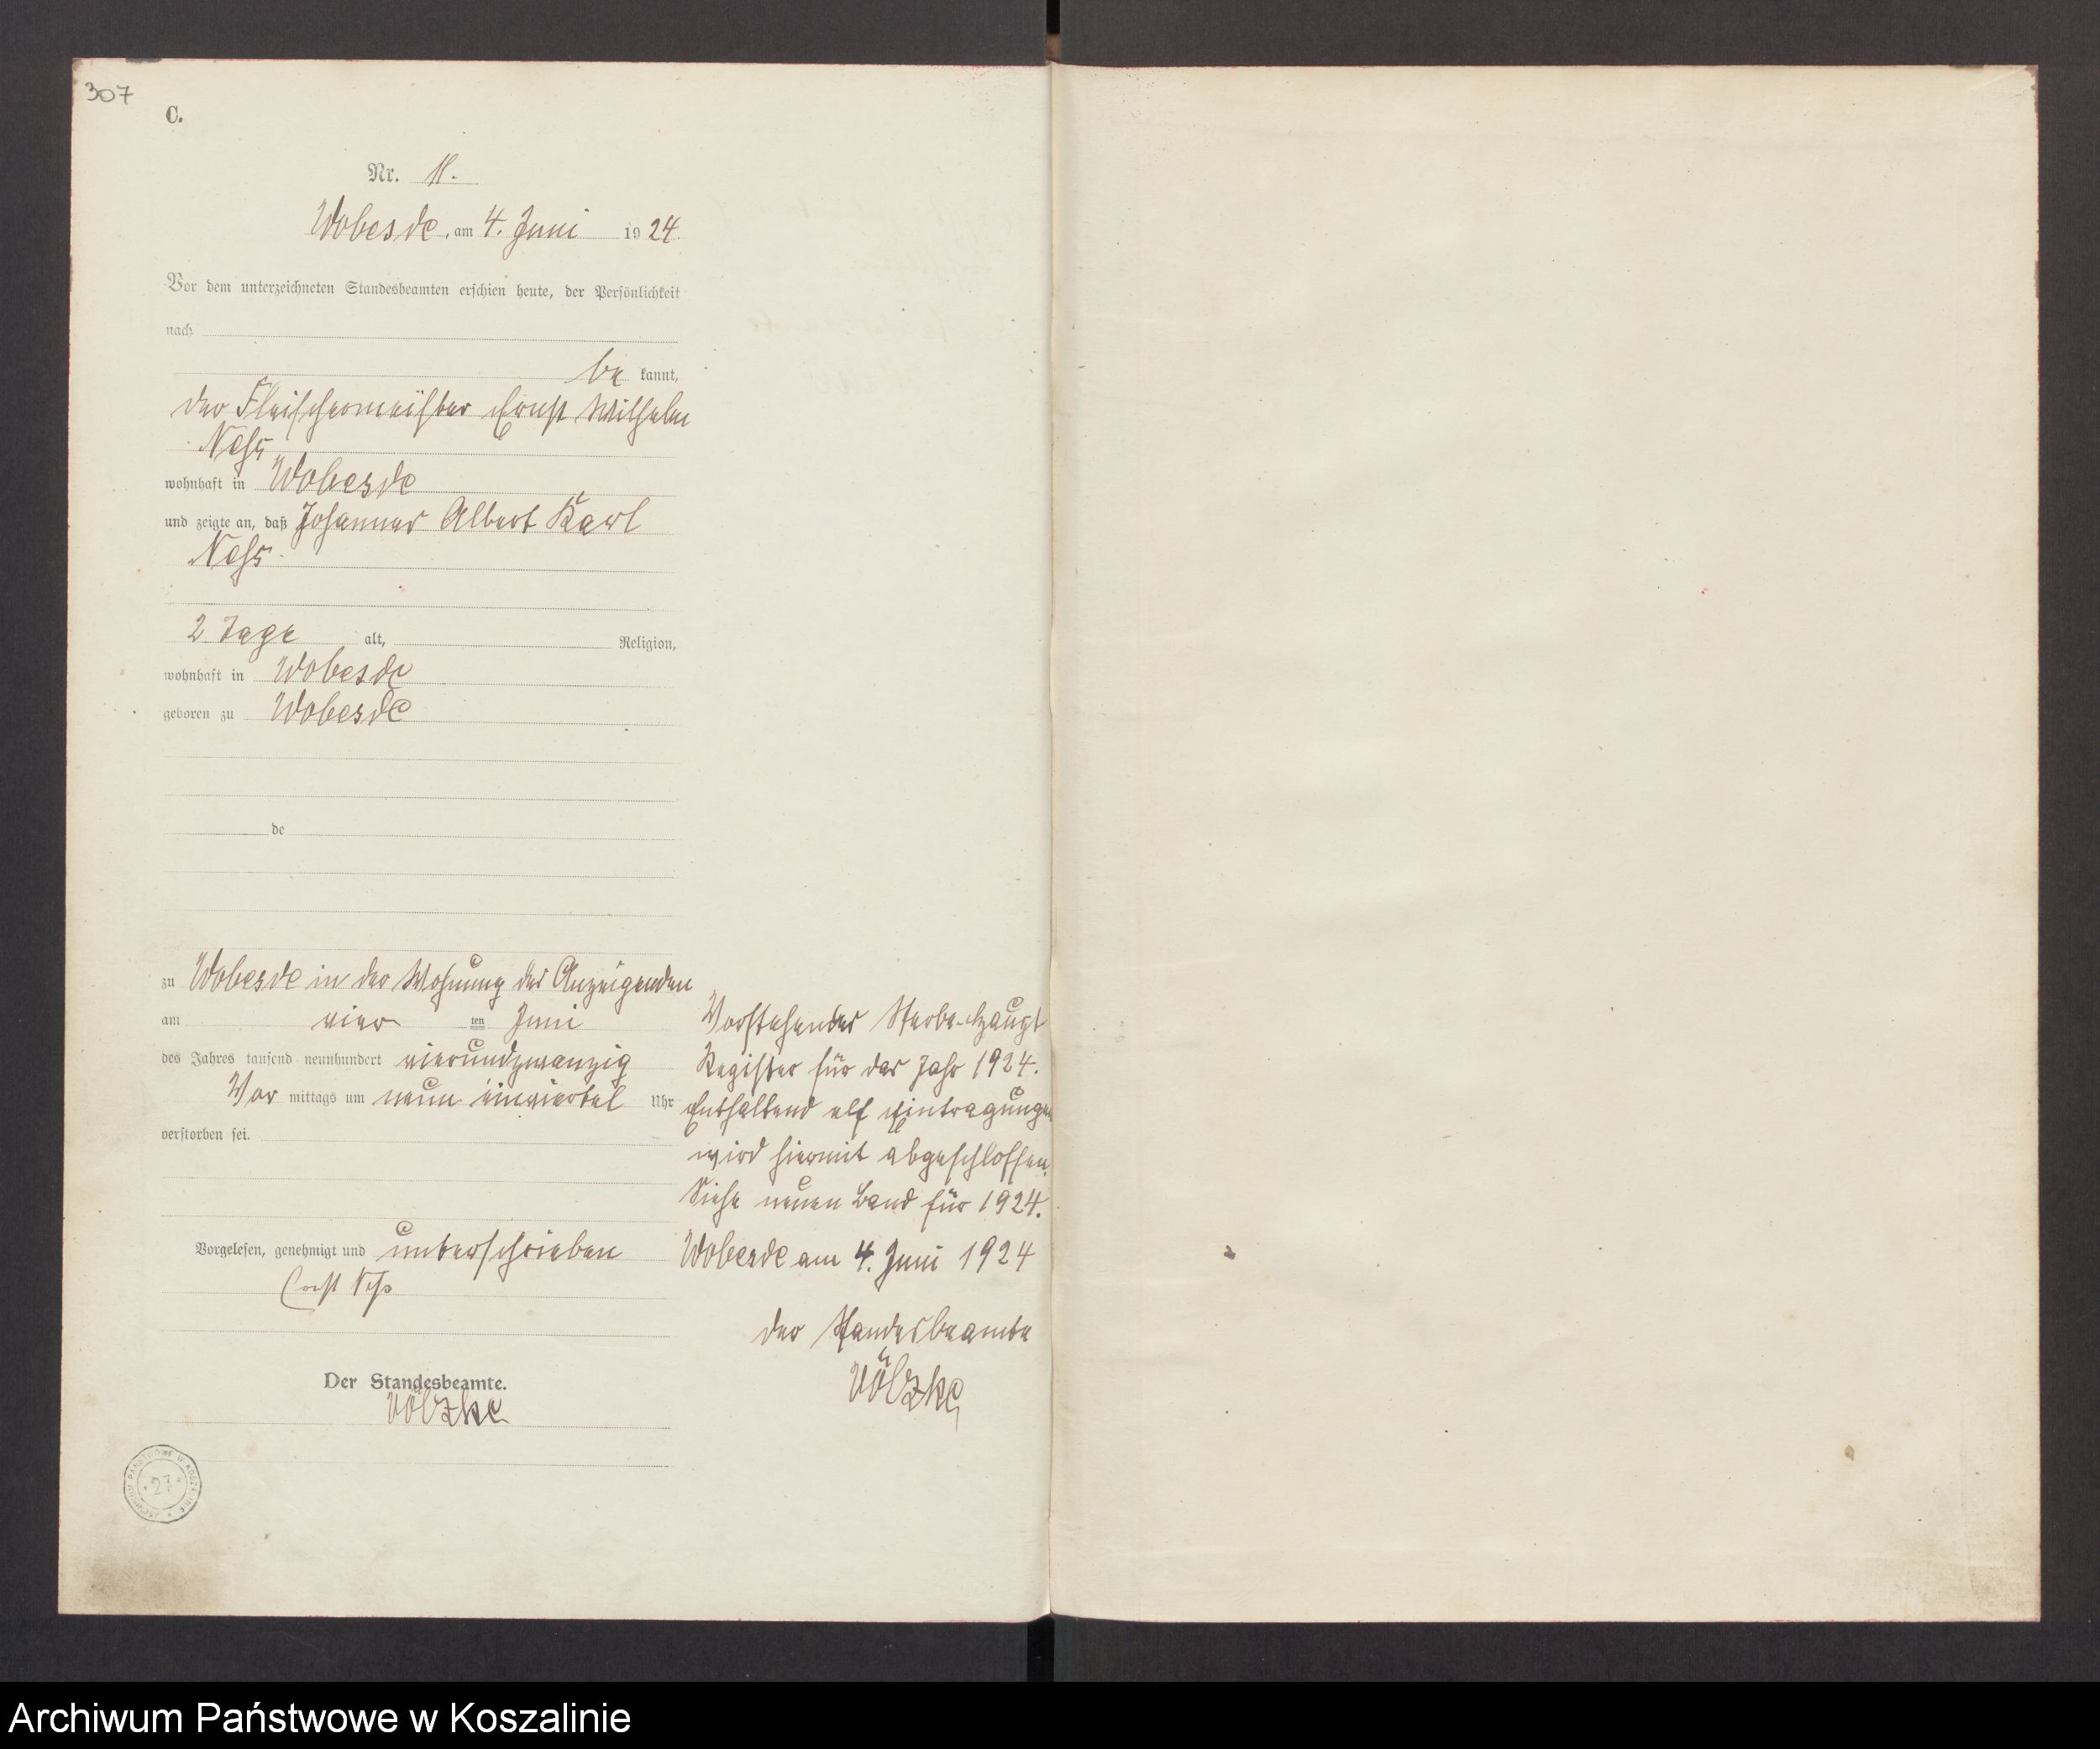 307
C.
Nr. 11.
Wobesde, am 4. Juni 1924.
Vor dem unterzeichneten Standesbeamten erschien heute, der Persönlichkeit
nach
be kannt,
der Fleischermeister Ernst Wilhelm
Ness
wohnhaft in Wobesde
und zeigte an, daß Johannes Albert Karl
Ness
2 Tage alt, Religion,
wohnhaft in Wobesde
geboren zu Wobesde
de
zu Wobesde in der Wohnung des Anzeigenden
am vier ten Juni
des Jahres tausend neunhundert vierundzwanzig
Vor mittags um neun einviertel Uhr
verstorben sei.
Vorgelesen, genehmigt und unterschrieben
Ernst Ness
Der Standesbeamte.
Völzke
Vorstehendes Sterbe-Haupt
Register für das Jahr 1924.
Enthaltend elf Eintragungen
wird hiermit abgeschlossen.
Siehe neuen Band für 1924.
Wobesde am 4. Juni 1924
der Standesbeamte
Völzke
ARCHIWUM PAŃSTWOWE W KOSZALINIE
* 27 *
Archiwum Państwowe w Koszalinie